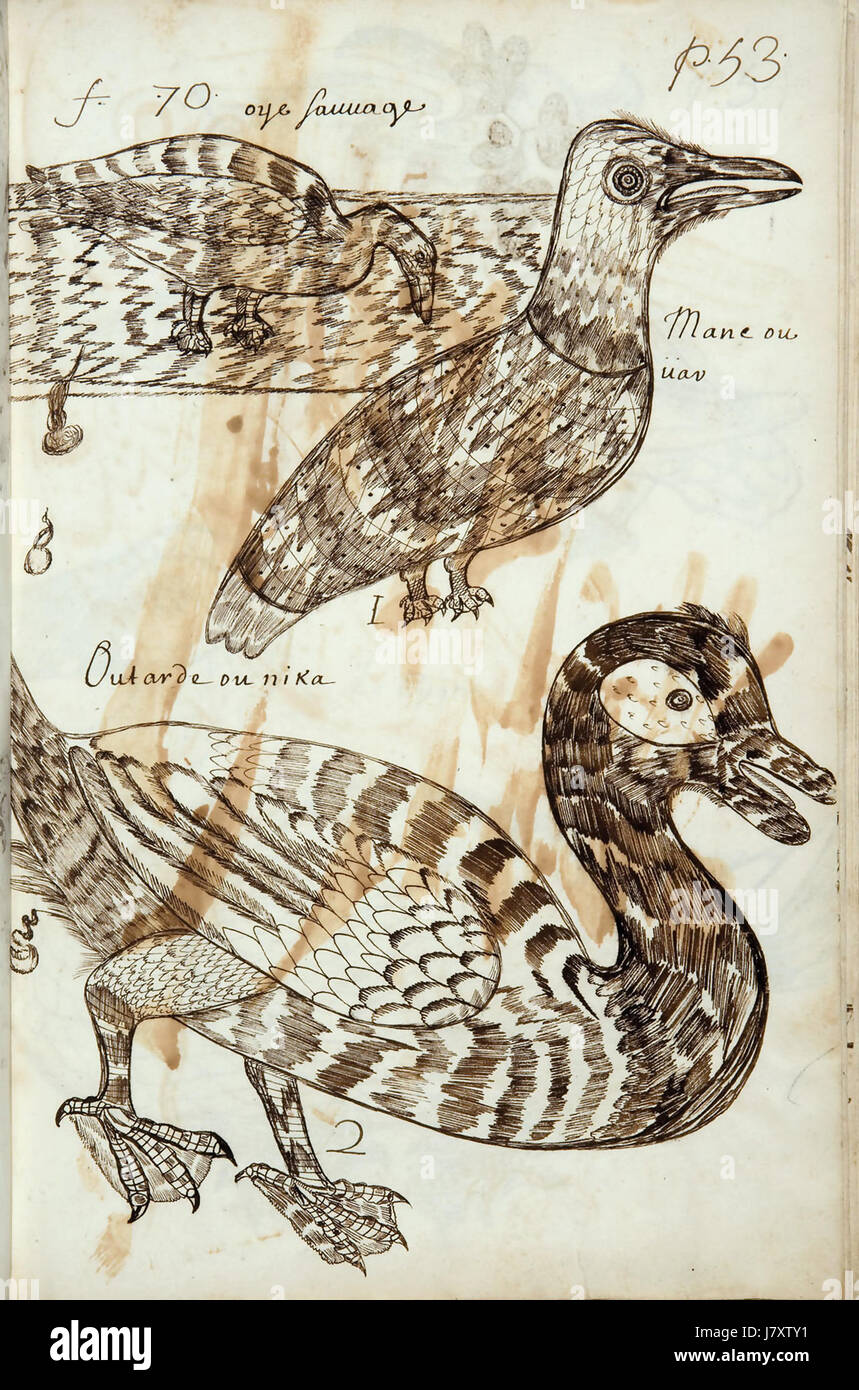 P. 53.
f. 70. oye sauuage
Mane ou
üav
1
Outarde ou nika
2
alamy
Image ID: J7XTY1
www.alamy.com